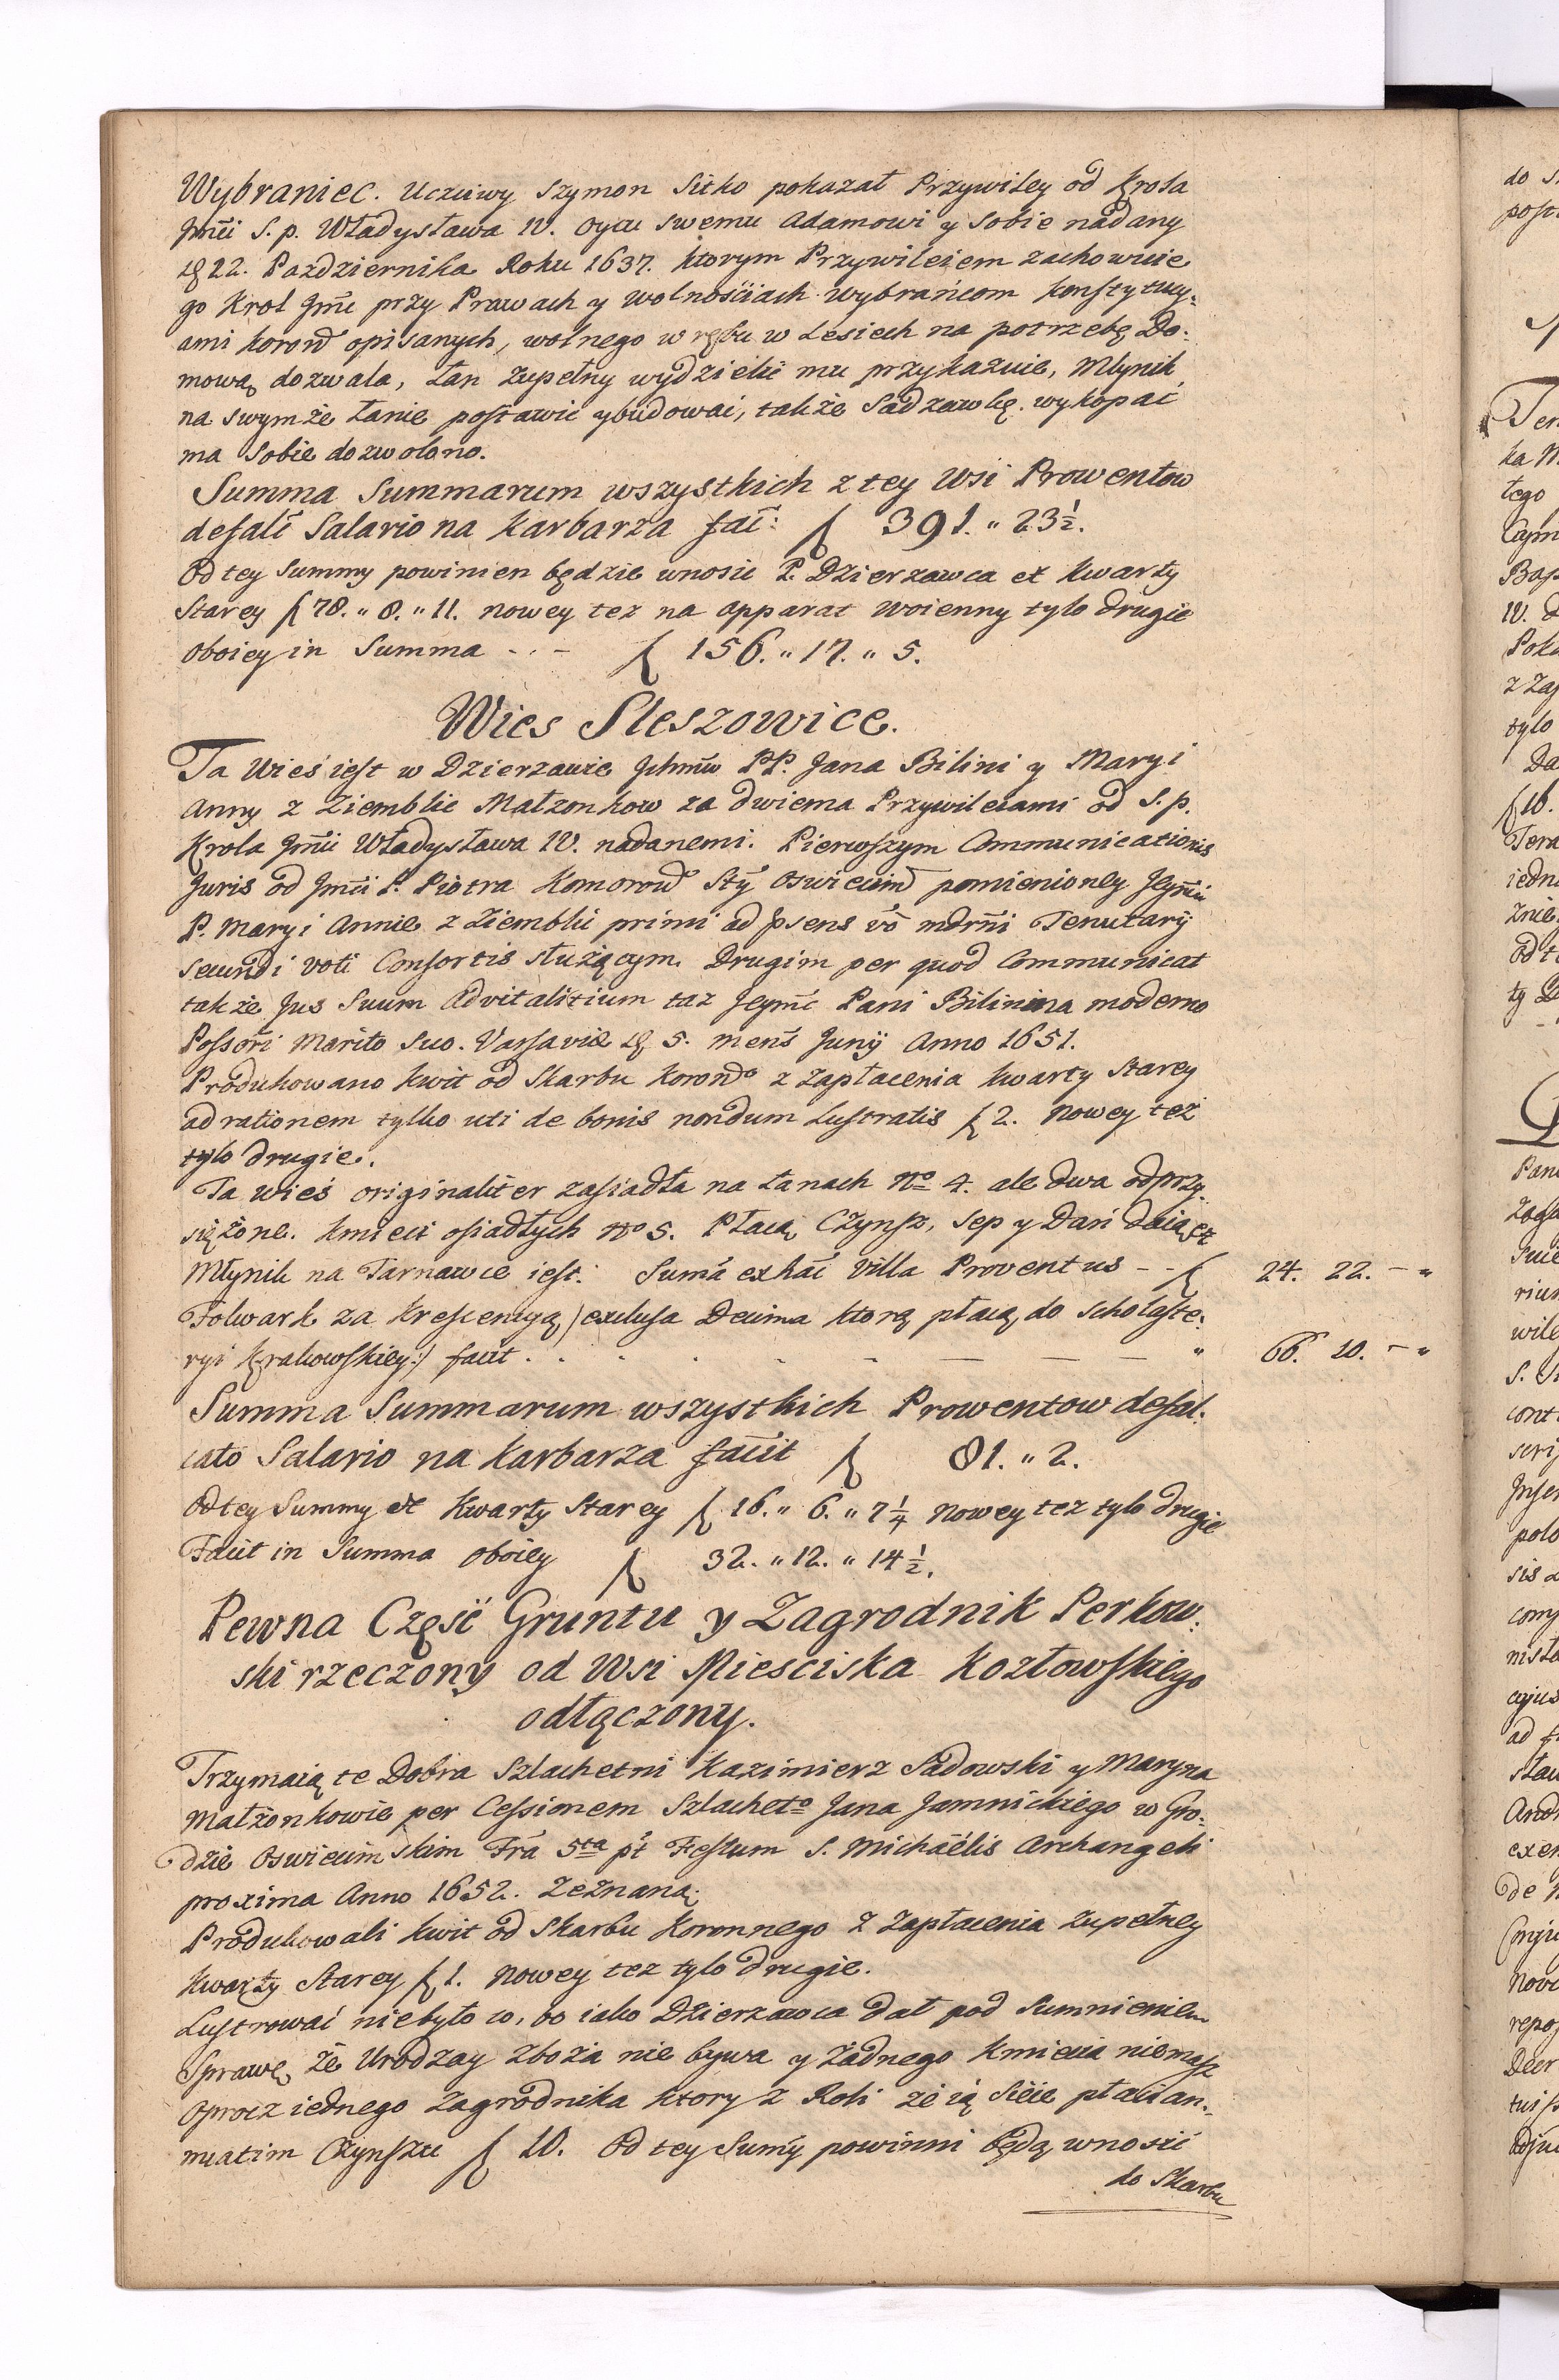 Wybraniec. Uczciwy Szymon Sitko pokazał Przywiley od Krola
Jmći S. p. Władysława IV. oycu swemu Adamowi y sobie nadany
22. Pazdziernika Roku 1637. ktorym Przywileiem zachowuie
go Krol Jmć przy Prawach y wolnościach wybrańcom konstytucy-
ami koron opisanych, wolnego wrębu w Lesiech na potrzebę Do-
mową dozwala, Łan zupełny wydzielić mu przykazuie, Młynik
na swymże Łanie postawić y budować, także Sadzawkę wykopać
ma sobie dozwolono.
Summa Summarum wszystkich z tey Wsi Prowentow
defalć Salario na Karbarza fać: f 391. " 23 1/2.
Od tey Summy powinien będzie wnosić P. Dzierzawca ex Kwarty
Starey f 78. " 8. " 11. nowey tez na apparat woienny tylo drugie
oboiey in Summa - - - f 156. " 17. " 5.
Wies Sleszowice.
Ta Wieś iest w Dzierzawie Jchmćw PP. Jana Bilini y Maryi
Anny z Ziemblic Małzonkow za dwiema Przywileiami od S. p.
Krola Jmći Władysława IV. nadanemi. Pierwszym Communicationis
Juris od Jmći P. Piotra Komorow Sty Oswiecim pomienioney Jeymći
P. Maryi Annie z Ziemblic primi ad psens vo mdrni Tenutarÿ
secundi voti Consortis służącym. Drugim per quod Communicat
także Jus Suum Advitalitium taz Jeymć Pani Bilinina moderno
Possori Marito Suo. Varsavie 5. mens Junÿ Anno 1651.
Produkowano kwit od Skarbu koron z zapłacenia kwarty Starey
ad rationem tylko uti de bonis nondum Lustratis f 2. Nowey też
tylo drugie.
Ta wieś originaliter zasiadła na Łanach No 4. ale dwa odprzy-
siężone. Kmieci osiadłych No 5. Płacą Czynsz, Sep y Dań daią ex
Młynik na Tarnawce iest: Suma exhac Villa Proventus - - f 24. 22. - "
Folwark za Krescencyą /exclusa Decima ktorą płacą do Scholaste-
ryi Krakowskiey:/ facit . . . . . - - - - " 66. 10. - "
Summa Summarum wszystkich Prowentow defal-
cato Salario na Karbarza facit f 81. " 2.
Od tey Summy ex Kwarty Starey f 16. " 6. " 7 1/4 nowey tez tylo drugie
Facit in Summa oboiey f 32. " 12. " 14 1/2.
Pewna Część Gruntu y Zagrodnik Perkow-
ski rzeczony od Wsi Miesciska Kozłowskiego
odłączony.
Trzymaią te Dobra Szlachetni Kazimierz Sadowski y Maryna
Małżonkowie per Cessionem Szlacheto Jana Jamnickiego w Gro-
dzie Oswiecimskim Fra 5ta pt Festum S. Michaëlis Archangeli
proxima Anno 1652. Zeznaną.
Produkowali kwit od Skarbu Koronnego z Zapłacenia zupełney
kwarty Starey f 1. Nowey tez tylo drugie.
Lustrować niebyło co, bo iako Dzierzawca dał pod Sumnieniem
Sprawę, że Urodzay zboża nie bywa y żadnego Kmiecia niemasz
oprocz iednego Zagrodnika ktory z Roli że ią Sieie płaci an-
nuatim Czynszu f 10. Od tey Sumy powinni będą wnosić
do Skarbu